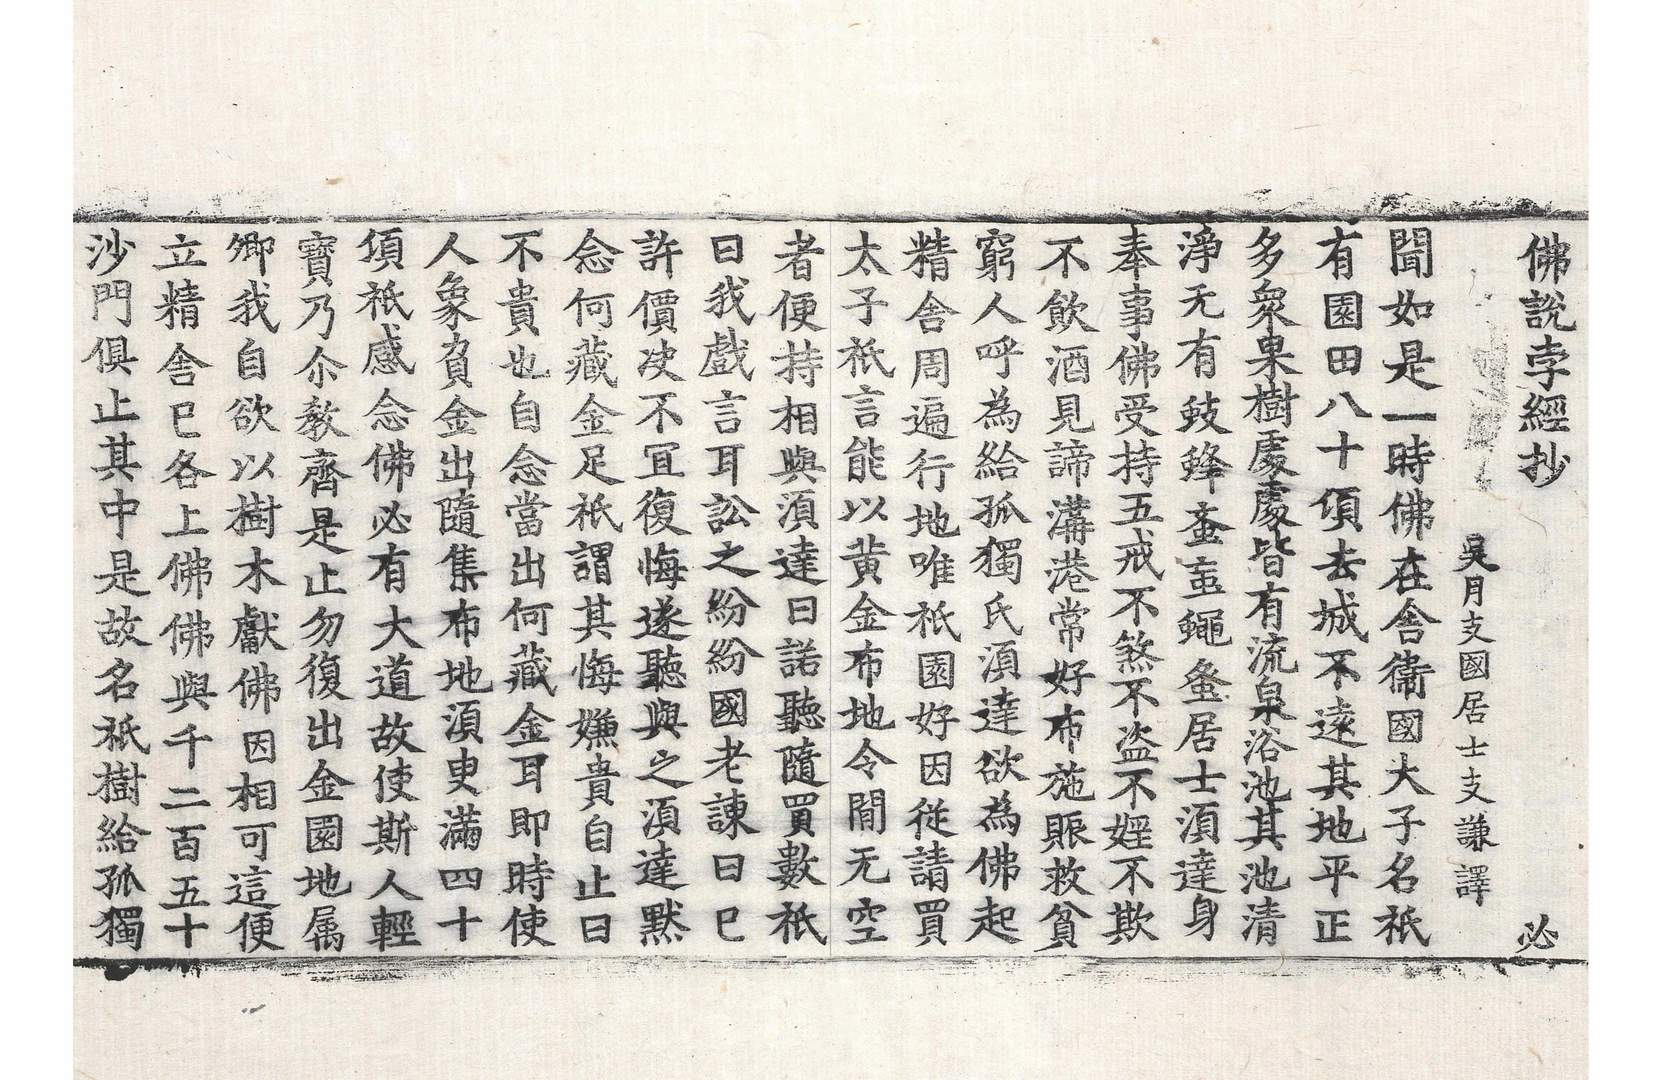 佛說孛經抄　必
吳月支國居士支謙譯
聞如是一時佛在舍衞國大子名祇
有園田八十頃去城不遠其地平正
多衆果樹處處皆有流泉浴池其池清
淨无有蚑蜂蚤䖟蠅蚤居士湏達身
奉事佛受持五戒不煞不盗不婬不欺
不飮酒見諦溝港常好布施賑救貧
窮人呼為給孤獨氏湏達欲為佛起
精舍周遍行地唯祇園好因從請買
太子祇言能以黄金布地令間无空
者便持相與湏達曰諾聽隨買數祇
曰我戲言耳訟之紛紛國老諫曰巳
許價决不冝復悔遂聽與之湏達默
念何藏金足祇謂其悔嫌貴自止曰
不貴也自念當出何藏金耳即時使
人象負金出隨集布地湏臾滿四十
頃祇感念佛必有大道故使斯人輕
寶乃尒教齊是止勿復出金園地属
卿我自欲以樹木獻佛因相可這便
立精舍巳各上佛佛與千二百五十
沙門俱止其中是故名祇樹給孤獨